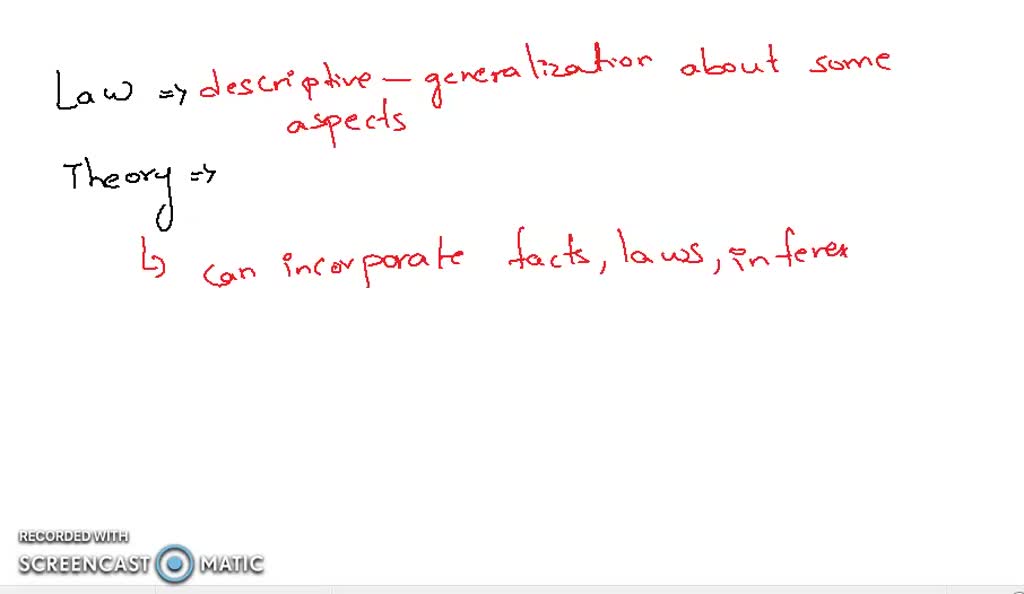 Law => descriptive – generalization about some
aspects
Theory =>
↳ can incorporate facts, laws, infere
RECORDED WITH
SCREENCAST MATIC